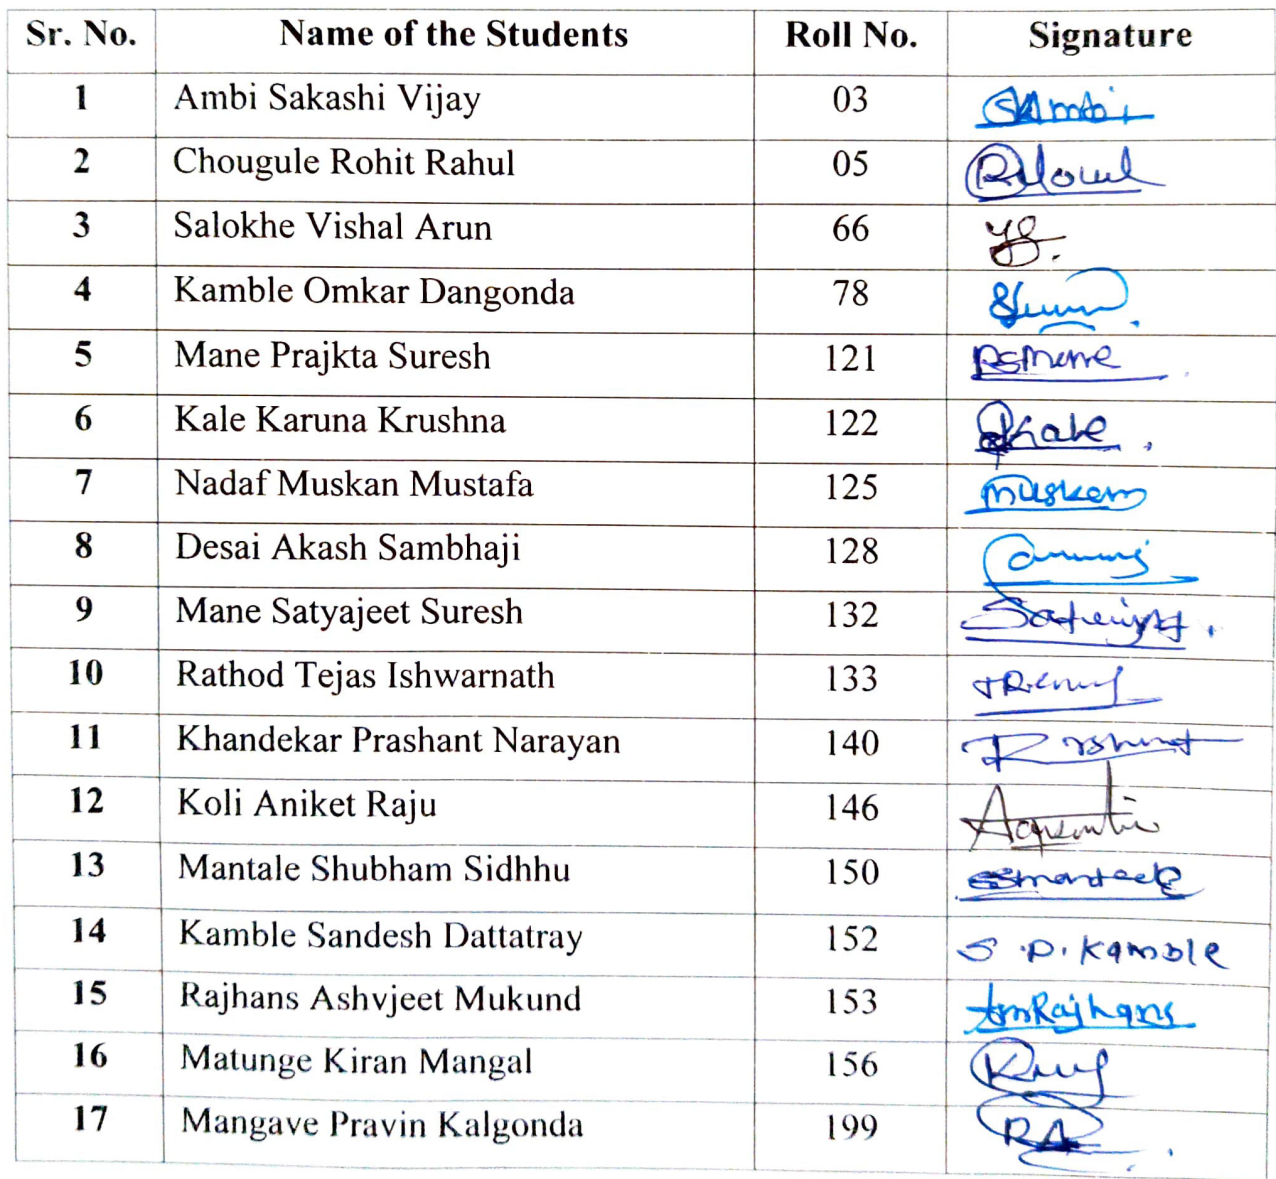 Sr. No. Name of the Students Roll No. Signature
1 Ambi Sakashi Vijay 03 SAmbi
2 Chougule Rohit Rahul 05
3 Salokhe Vishal Arun 66
4 Kamble Omkar Dangonda 78
5 Mane Prajkta Suresh 121 PSMane
6 Kale Karuna Krushna 122 Kale
7 Nadaf Muskan Mustafa 125 Muskan
8 Desai Akash Sambhaji 128
9 Mane Satyajeet Suresh 132
10 Rathod Tejas Ishwarnath 133
11 Khandekar Prashant Narayan 140
12 Koli Aniket Raju 146
13 Mantale Shubham Sidhhu 150
14 Kamble Sandesh Dattatray 152 S.D. Kamble
15 Rajhans Ashvjeet Mukund 153 AmRajhans
16 Matunge Kiran Mangal 156
17 Mangave Pravin Kalgonda 199